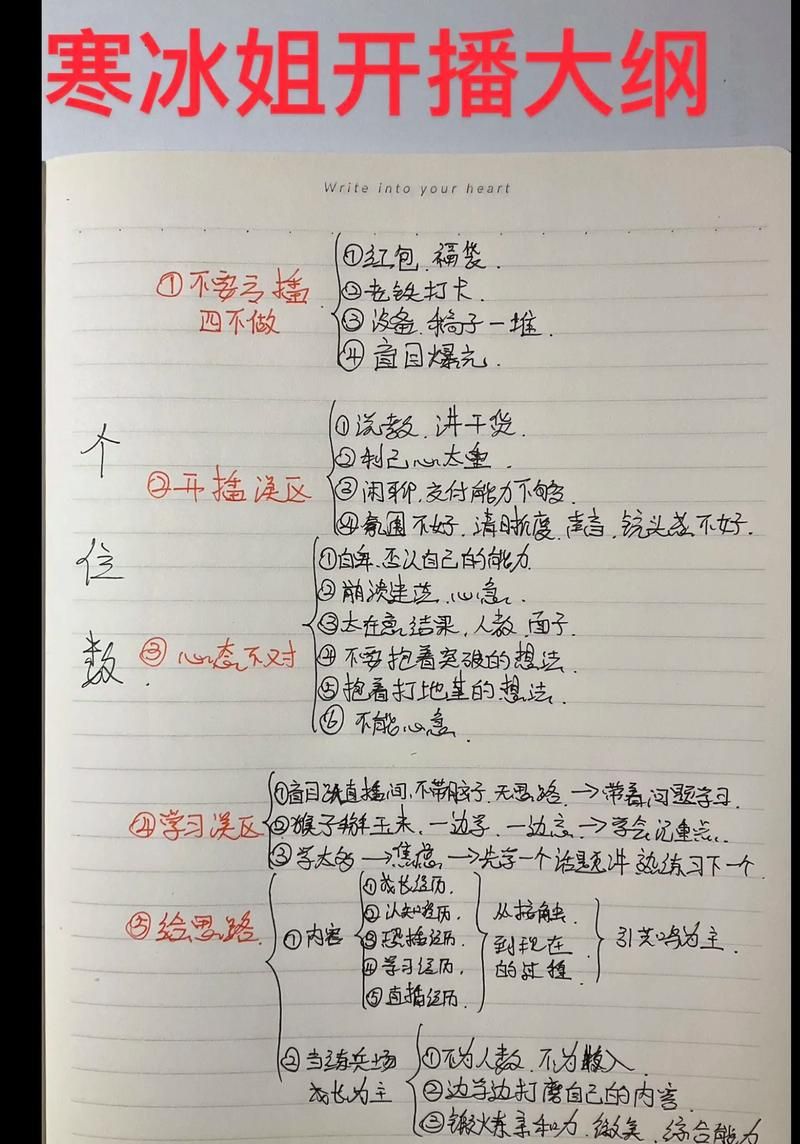 寒冰姐开播大纲
Write into your heart
个位数.
①不要言播
四不做
①红包、福袋.
②老铁打卡.
③设备、稿子一堆.
④盲目爆光.
②开播误区
①说教、讲干货.
②利己心太重.
③闲聊,交付能力不够.
④氛围不好、清晰度、声音、镜头感不好.
③心态不对
①自卑、否认自己的能力
②崩溃建英、心急.
③太在意结果,人数、面子.
④不要抱着突破的想法.
⑤抱着打地基的想法.
⑥不能心急.
④学习误区
①盲目刷直播间,不带脑子、无思路→带着问题学习.
②猴子掰玉米,一边学、一边忘→学会记重点.
③学太多→焦虑→先学一个话题讲熟练习下一个.
⑤给思路.
①内容
①成长经历.
②认知经历.
③恐播经历.
④学习经历.
⑤直播经历.
从接触
到现在
的过程
引共鸣为主.
②当练兵场
成长为主
①不为人数、不为收入.
②边学边打磨自己的内容
③锻炼亲和力、微笑、综合能力